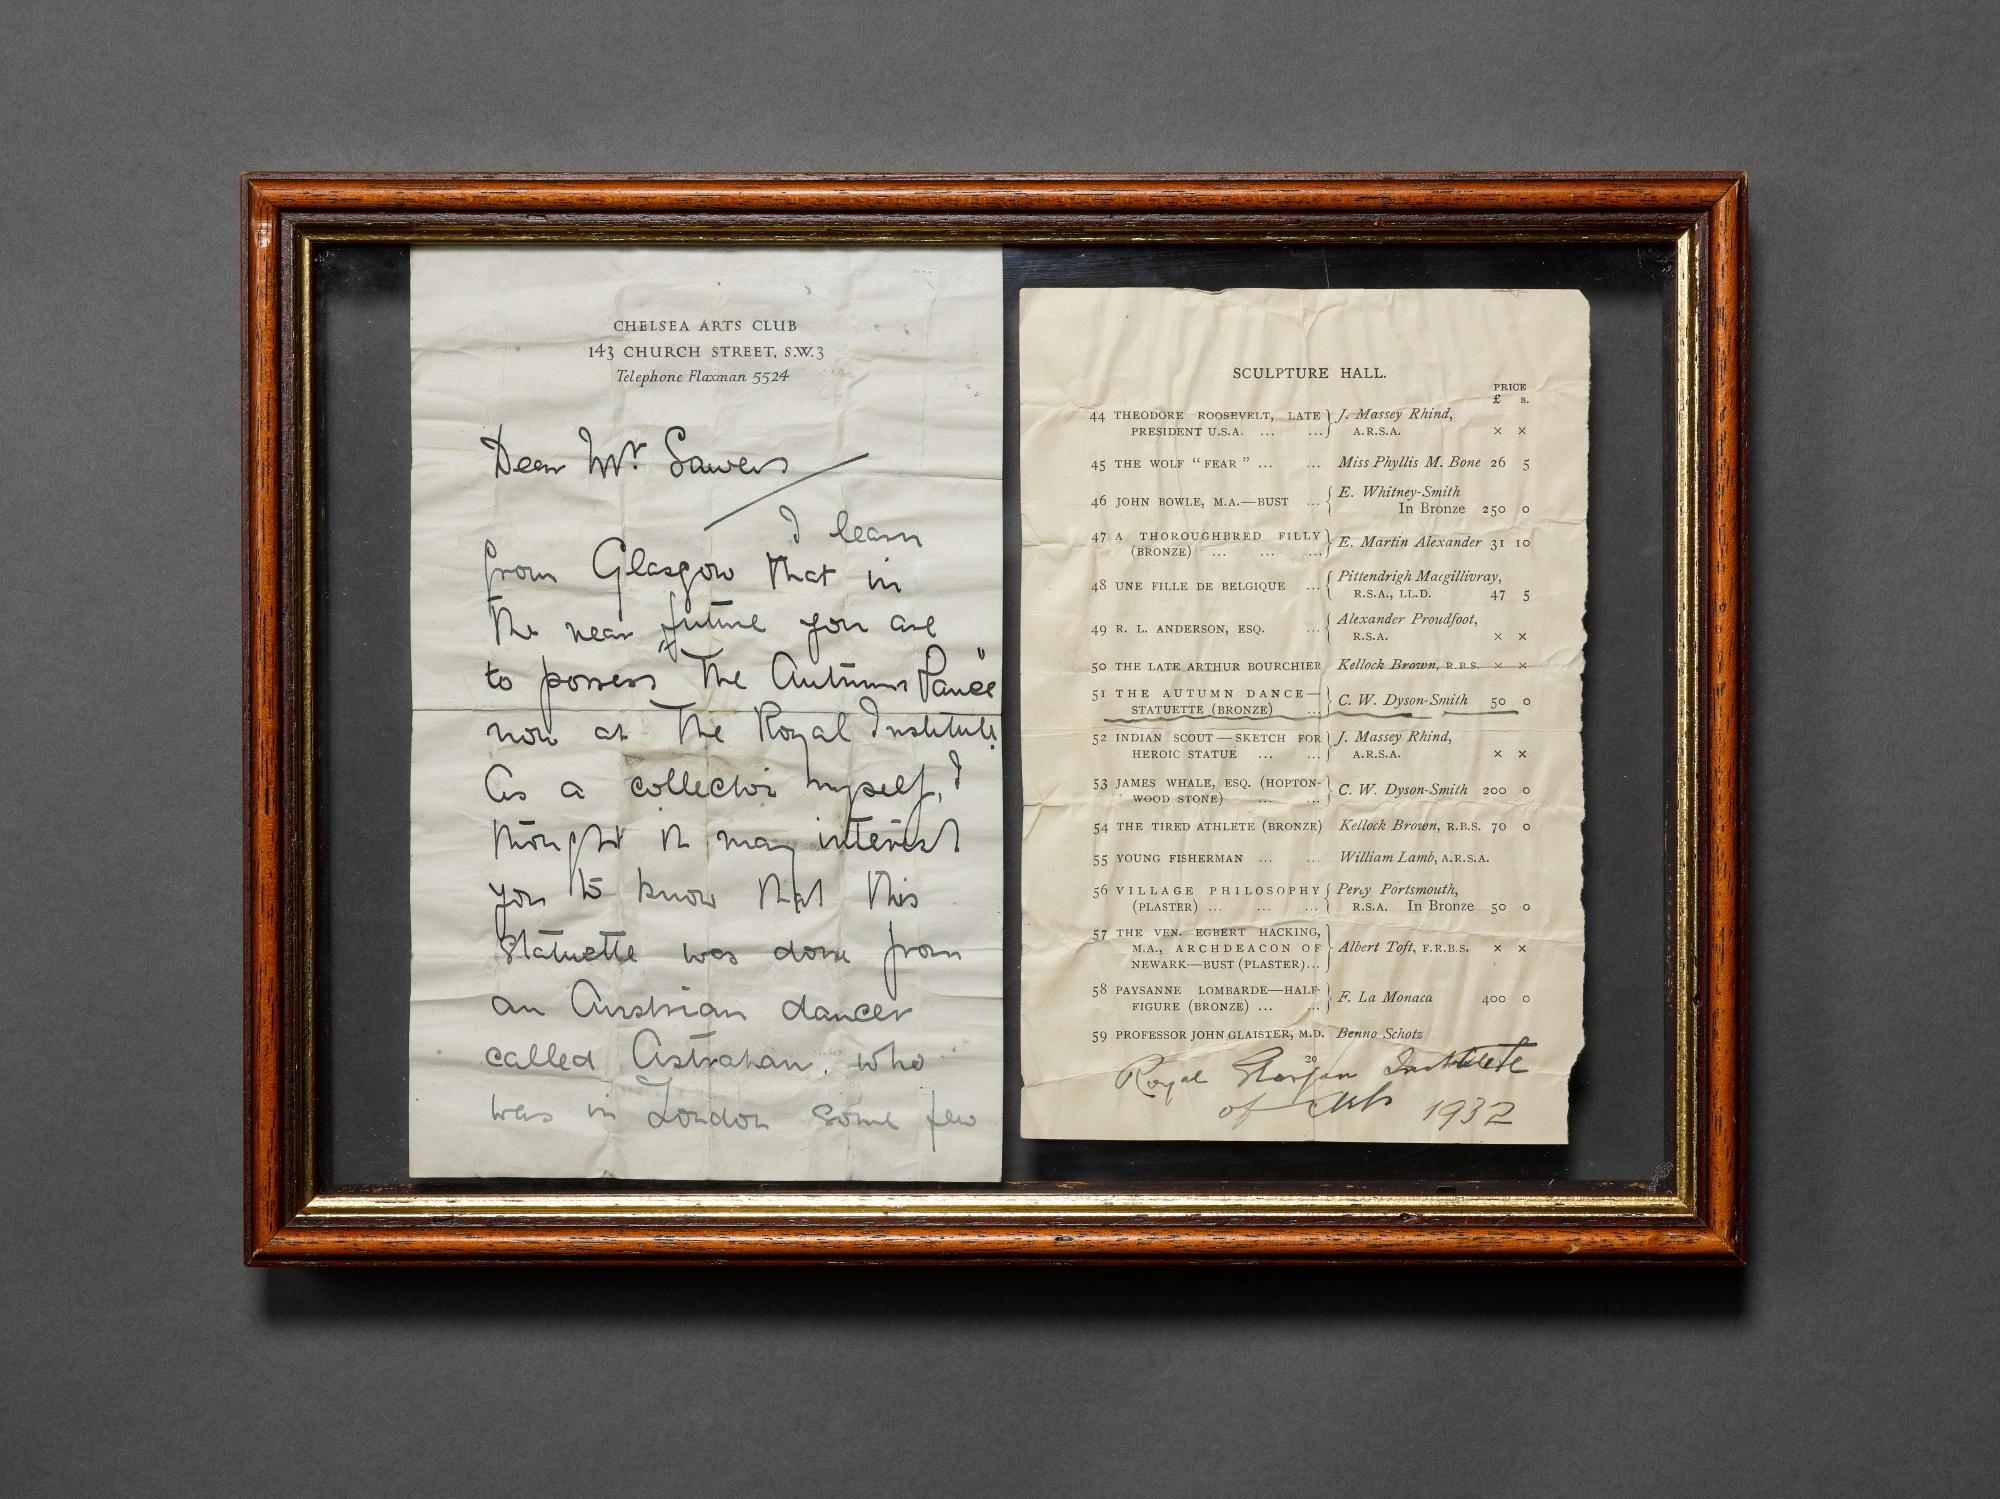 CHELSEA ARTS CLUB
143 CHURCH STREET, S.W.3
Telephone Flaxman 5524
Dear Mr. Sawers
I learn
from Glasgow that in
the near future you are
to possess "The Autumn Dance"
now at The Royal Institute.
As a collector myself, I
thought it may interest
you to know that this
statuette was done from
an Austrian dancer
called Astrahan. who
was in London some few
SCULPTURE HALL.
PRICE
£ s.
44 THEODORE ROOSEVELT, LATE } J. Massey Rhind,
PRESIDENT U.S.A. ... ... A.R.S.A. × ×
45 THE WOLF "FEAR" ... ... Miss Phyllis M. Bone 26 5
46 JOHN BOWLE, M.A.—BUST ... { E. Whitney-Smith
In Bronze 250 0
47 A THOROUGHBRED FILLY
(BRONZE) ... ... ... } E. Martin Alexander 31 10
48 UNE FILLE DE BELGIQUE ... { Pittendrigh Macgillivray,
R.S.A., LL.D. 47 5
49 R. L. ANDERSON, ESQ. ... { Alexander Proudfoot,
R.S.A. × ×
50 THE LATE ARTHUR BOURCHIER Kellock Brown, R.B.S. × ×
51 THE AUTUMN DANCE—
STATUETTE (BRONZE) ... } C. W. Dyson-Smith 50 0
52 INDIAN SCOUT—SKETCH FOR } J. Massey Rhind,
HEROIC STATUE ... ... A.R.S.A. × ×
53 JAMES WHALE, ESQ. (HOPTON-
WOOD STONE) ... ... } C. W. Dyson-Smith 200 0
54 THE TIRED ATHLETE (BRONZE) Kellock Brown, R.B.S. 70 0
55 YOUNG FISHERMAN ... ... William Lamb, A.R.S.A.
56 VILLAGE PHILOSOPHY { Percy Portsmouth,
(PLASTER) ... ... ... R.S.A. In Bronze 50 0
57 THE VEN. EGBERT HACKING,
M.A., ARCHDEACON OF } Albert Toft, F.R.B.S. × ×
NEWARK—BUST (PLASTER)...
58 PAYSANNE LOMBARDE—HALF-
FIGURE (BRONZE) ... ... } F. La Monaca 400 0
59 PROFESSOR JOHN GLAISTER, M.D. Benno Schotz
20
Royal Glasgow Institute
of Arts 1932